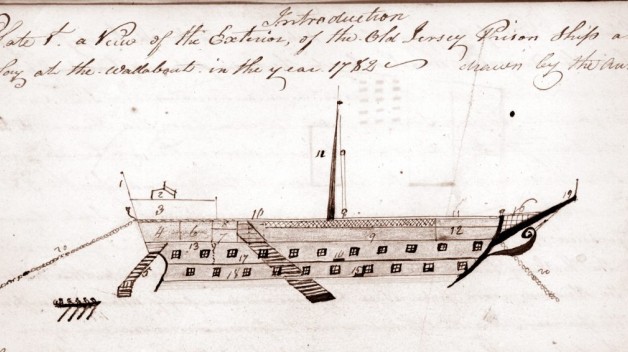 Introduction
Plate 1. a View of the Exterior, of the Old Jersey Prison Ship a
lay at the Wallabout in the year 1782 drawn by the Au
1
2
3
10
12
8
11
16
19
4
6
9
12
5
13
17
14
18
15
20
20